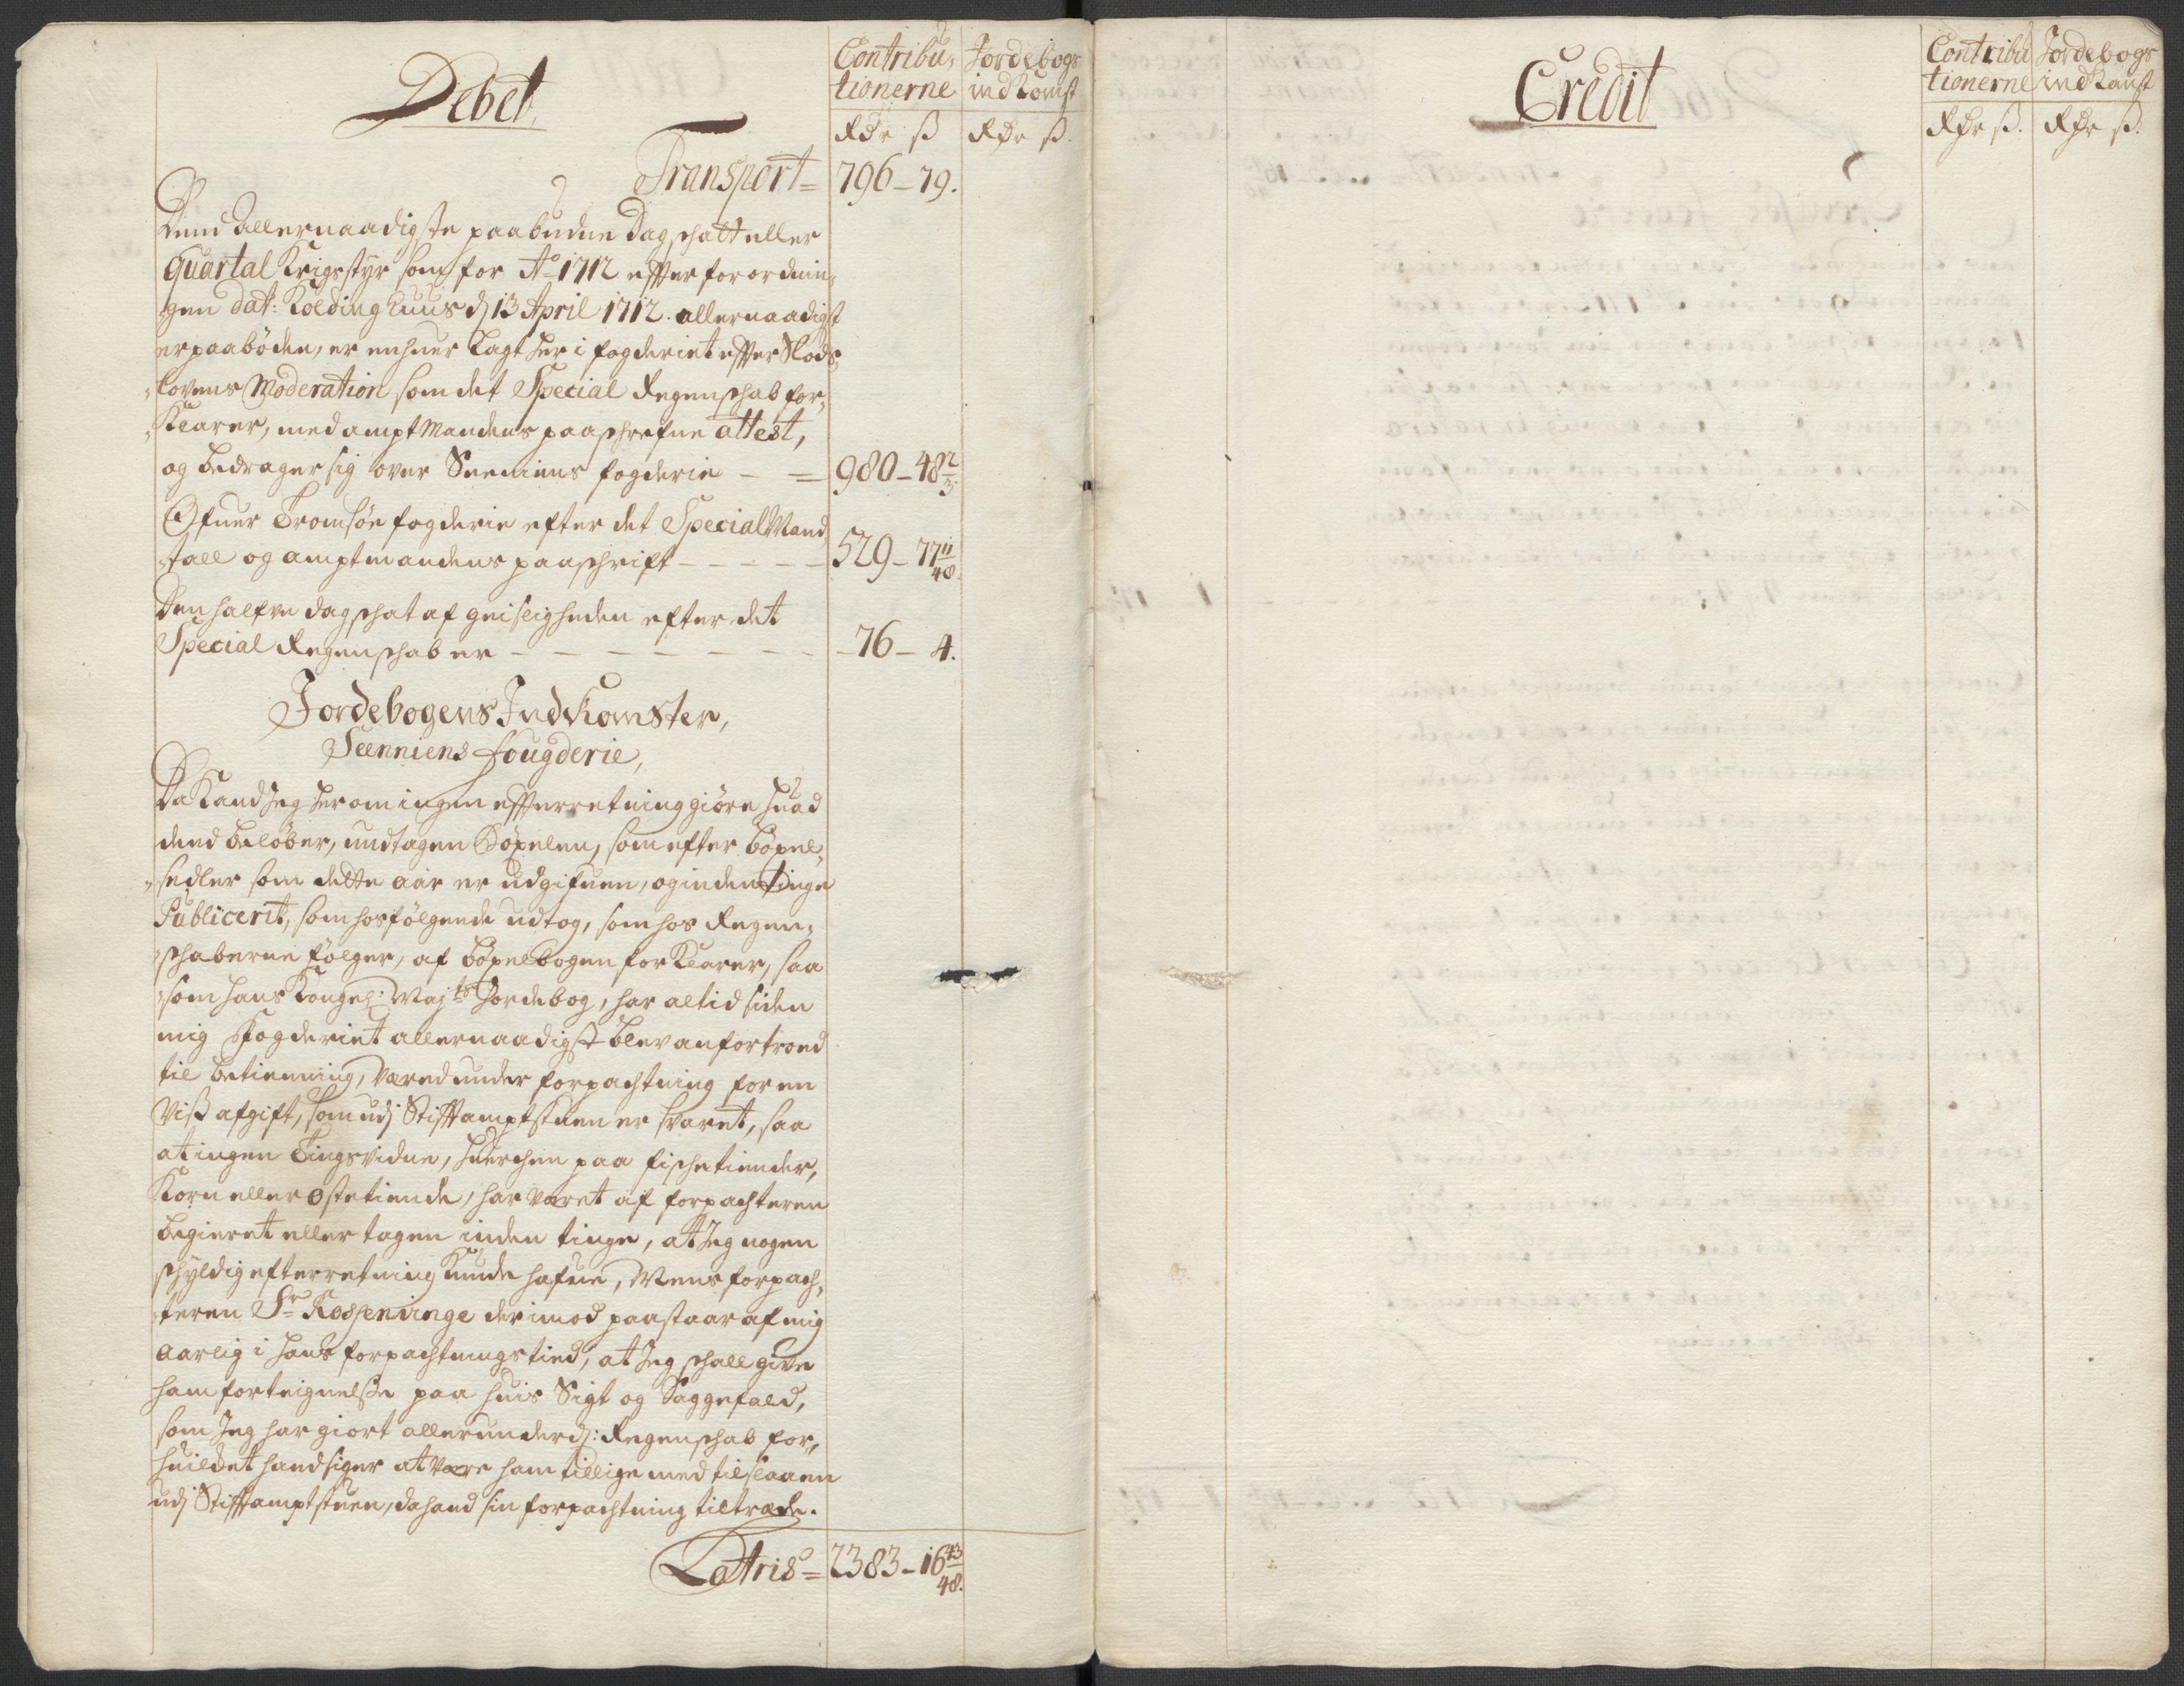 Debet
Contribu,
tionerne
Jordebogs
indkomst
Rdr ß
Rdr ß.
Transport = 796 - 79.
Dend Allernaadigste paabudne Dagschatt eller
Quartal Krigsstyr som for Ao 1712 effter forordnin,
gen dat: Kolding huus dj 13 April 1712. allernaadigst
er paaböden, er enhuer lagt her i fogderiet effter Slods,
lovens Moderation som det Special Regenschab for,
klarer, med amptmandens paaschrefne attest,
og bedrager sig over Senniens fogderie - = 980 - 48 2/3
Ofuer Tromsöe fogderie efter det Special Mand
tall og amptmandens paaschrift - - - - - 529 - 77 11/48.
Den halfve dagschat af geistligheden efter det
Special Regenschab er - - - - - - - 76 - 4.
Jordebogens Indkomster,
Seenniens Fougderie,
Da kand Jeg her om ingen effterretning giöre huad
dend belöber, undtagen Böxelen, som efter böxel,
sedler som dette aar er udgifuen, og inden Tinge
Publicerit, som hosfölgende udtog, som hos Regen,
schaberne fölger, af böxelbogen forklarer, saa
som hans Kongel: Maj:ts Jordebog, har altid siden
mig Fogderiet allernaadigst blev anfortroed
til betienning, været under forpachtning for en
Viss afgift, som udj Stifftamptstuen er svaret, saa
at ingen Tingsvidne, huerchen paa fischetiender,
Korn eller Ostetiende, har været af forpachteren
begieret eller tagen inden tinge, at Jeg nogen
schyldig efterretning kunde hafue, Mens forpach,
teren Sr Kossenvinge derimod paastaar af mig
aarlig i hans forpachtnings tied, at Jeg schall give
ham forteignelsse paa huis Sigt og Saggefald,
som Jeg har giort allerunderd: Regenschab for,
huilchet hand siger at være ham tillige med tilslaaen
udj Stifftamptstuen, da hand sin forpachtning tiltræde.
Lattris = 2383 - 16 43/48.
Credit
Contribu
tionerne
Jordebogs
indkomst
Rdr ß.
Rdr ß.